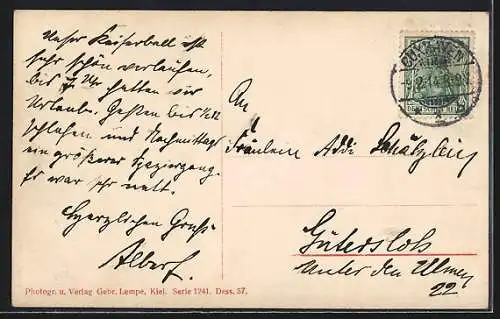 Unser Kaiserball ist
sehr schön verlaufen,
bis 7 Uhr hatten wir
Urlaub. Gestern bis ½12
schlafen und Nachmittags
ein größerer Spaziergang.
Es war sehr nett.
Herzlichen Gruß
Albert.
An
Fräulein Addi
Gütersloh
Unter den Ulmen
22
Photogr. u. Verlag Gebr. Lempe, Kiel. Serie 1241. Dess. 57.
CUXHAVEN